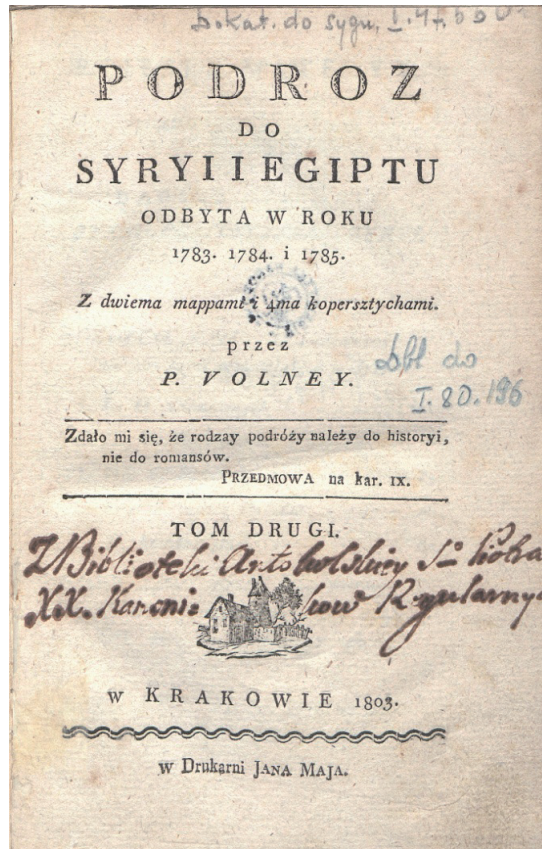 Dokat. do sygn. I.
PODROZ
DO
SYRYI I EGIPTU
ODBYTA W ROKU
1783. 1784. i 1785.
Z dwiema mappami i 4ma kopersztychami.
przez
P. VOLNEY.
dbl do
I.80.196
Zdało mi się, że rodzay podróży należy do historyi,
nie do romansów.
PRZEDMOWA na kar. IX.
TOM DRUGI.
Z Biblioteki
XX. Kanonikow Regularny
w KRAKOWIE 1803.
w Drukarni JANA MAJA.